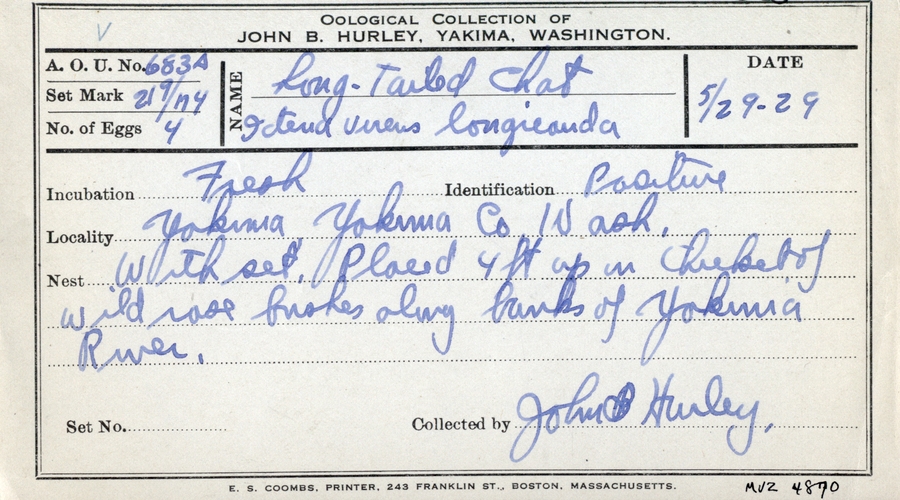 OOLOGICAL COLLECTION OF
JOHN B. HURLEY, YAKIMA, WASHINGTON.
A. O. U. No. 683A
Set Mark 219/n4
No. of Eggs 4
NAME
Long-Tailed Chat
Icteria virens longicauda
DATE
5/29-29
Incubation Fresh Identification Positive
Locality Yakima, Yakima Co Wash.
Nest With set. Placed 4 ft up in thicket of
wild rose bushes along banks of Yakima
River.
Set No.
Collected by John B Hurley,
E. S. COOMBS, PRINTER, 243 FRANKLIN ST., BOSTON, MASSACHUSETTS.
MVZ 4870